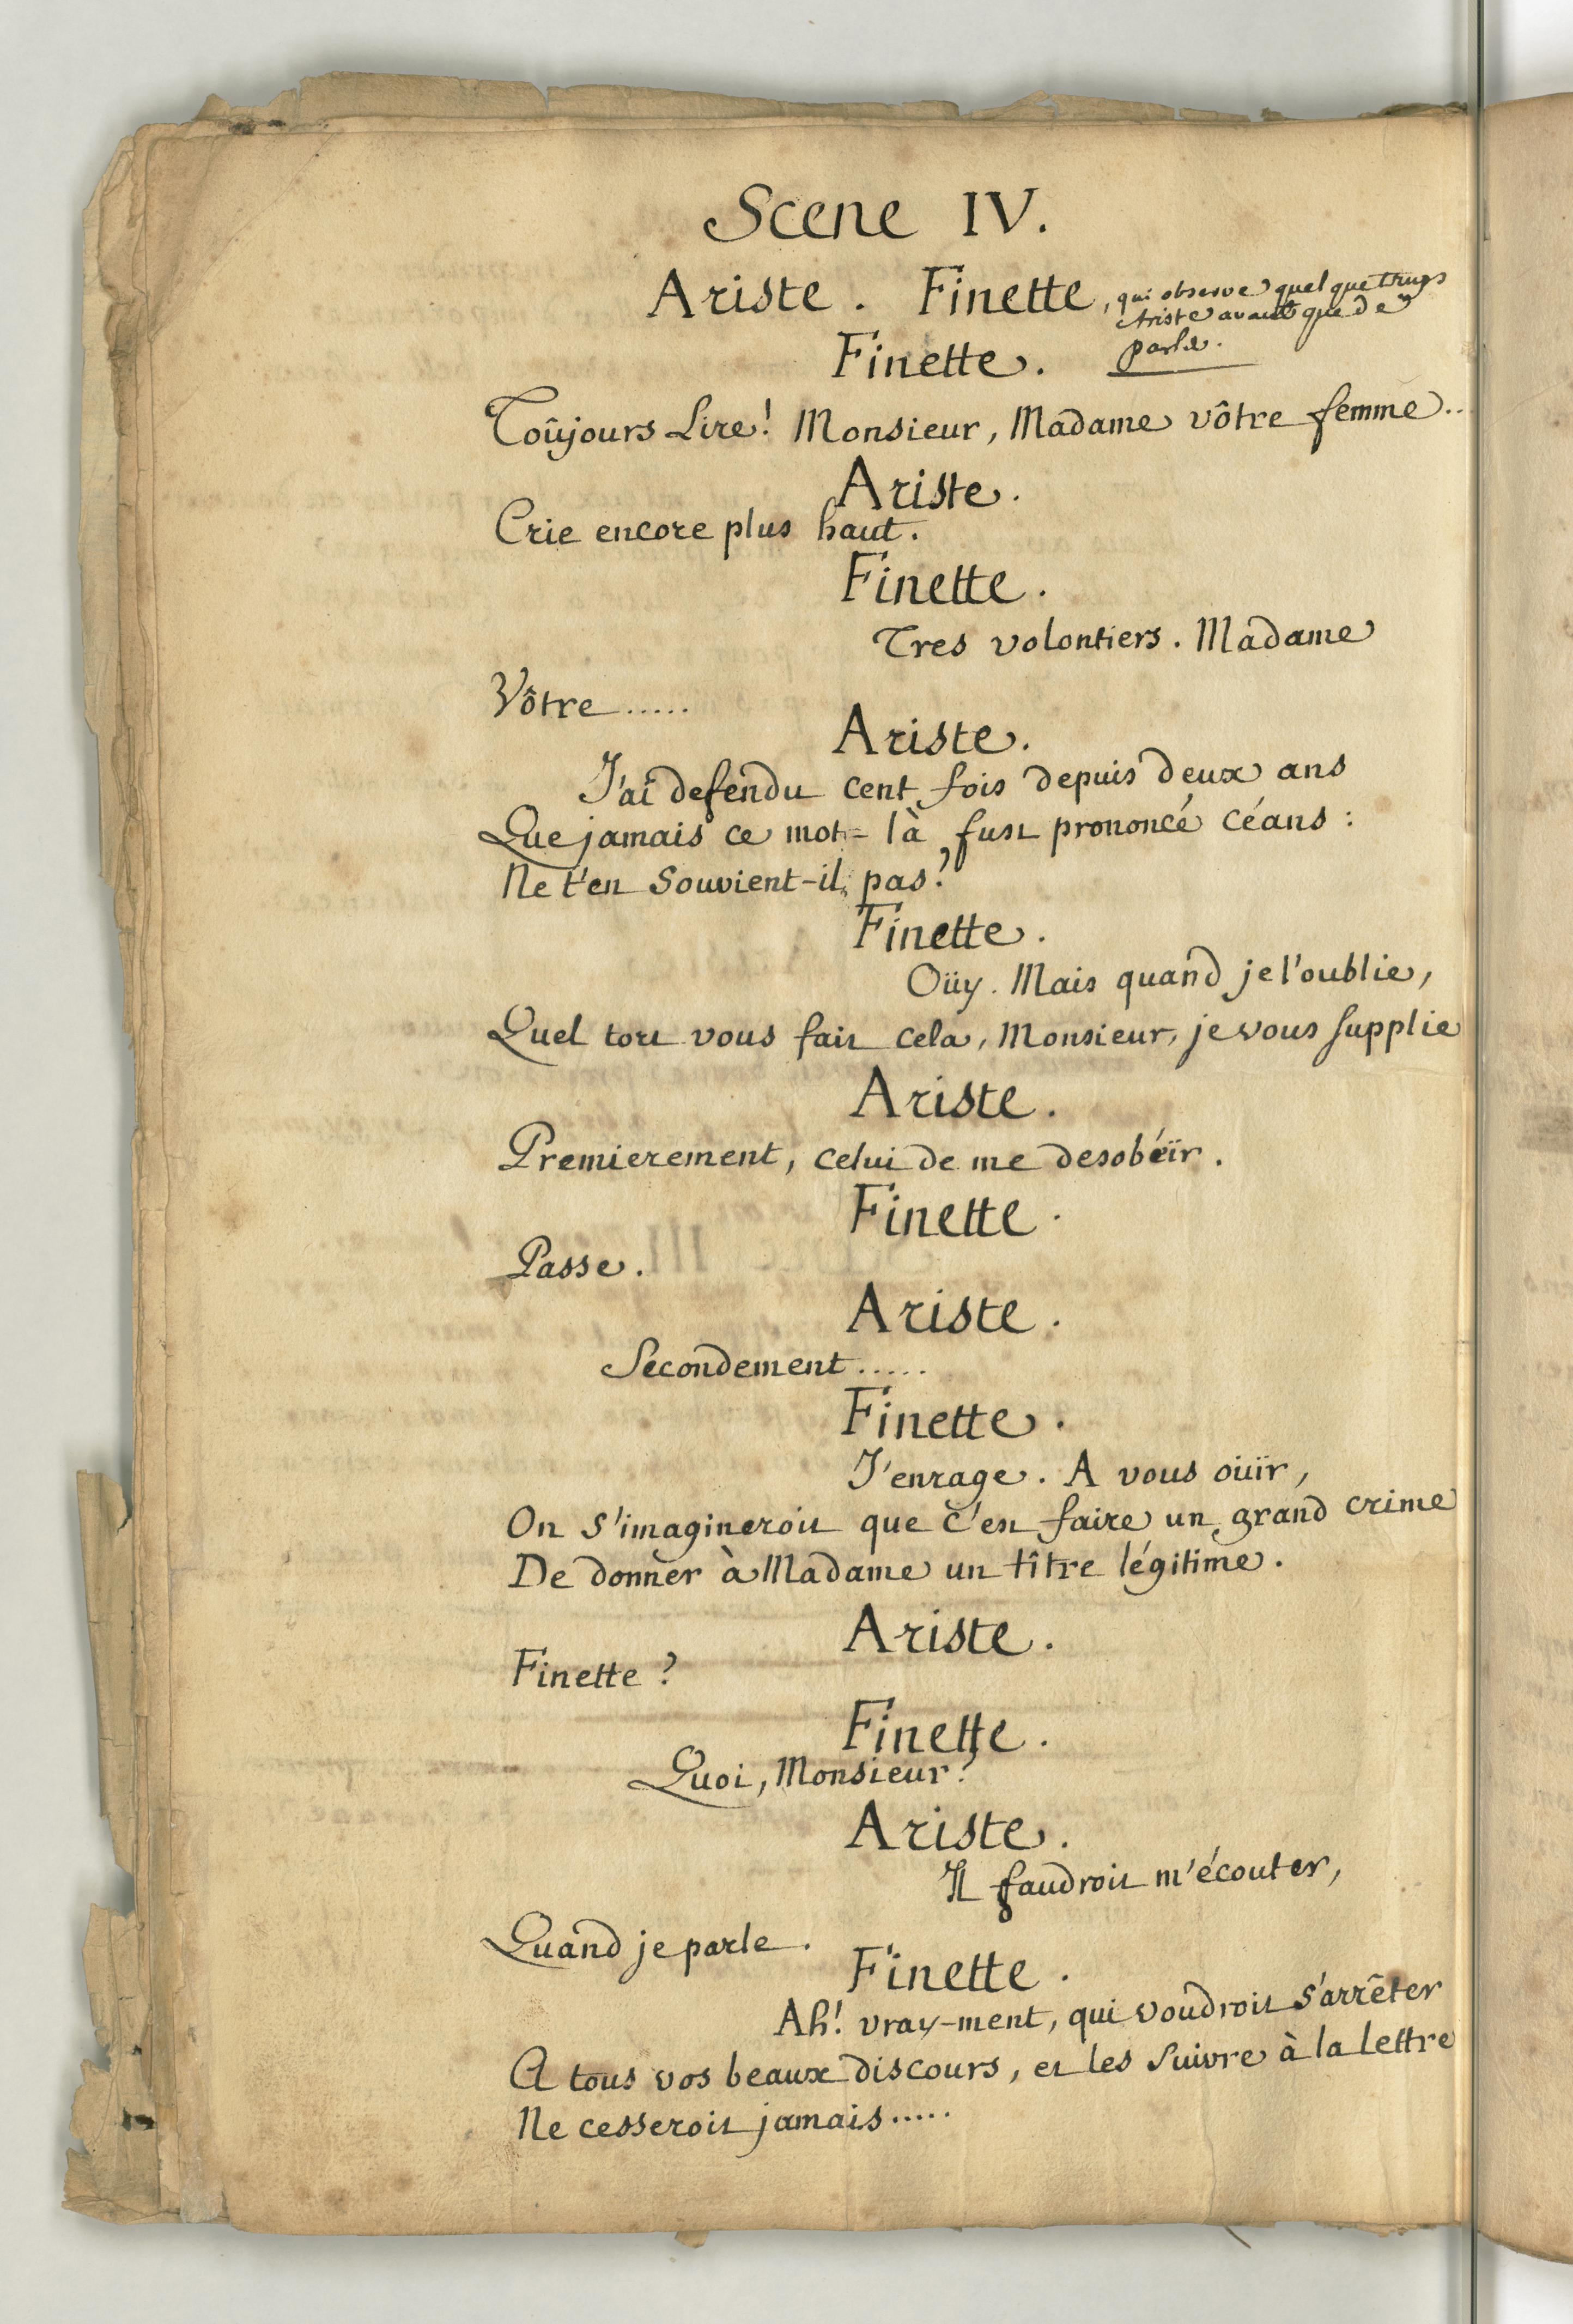 Scene IV.
Ariste. Finette, qui observe quelque temps
Ariste avant que de
parler.
Finette.
Toûjours Lire! Monsieur, Madame vôtre femme..
Ariste.
Crie encore plus haut.
Finette.
Tres volontiers. Madame
Vôtre.....
Ariste.
J'ai defendu cent fois depuis deux ans
Que jamais ce mot-là fust prononcé céans:
Ne t'en Souvient-il pas?
Finette.
Oüy. Mais quand je l'oublie,
Quel tort vous fait cela, Monsieur, je vous supplie
Ariste.
Premierement, celui de me desobéïr.
Finette.
Passe.
Ariste.
Secondement.....
Finette.
J'enrage. A vous oüïr,
On s'imagineroit que c'est faire un grand crime
De donner à Madame un tître légitime.
Ariste.
Finette?
Finette.
Quoi, Monsieur?
Ariste.
Il faudroit m'écouter,
Quand je parle.
Finette.
Ah! vray-ment, qui voudroit s'arrêter
A tous vos beaux discours, et les Suivre à la Lettre
Ne cesseroit jamais.....